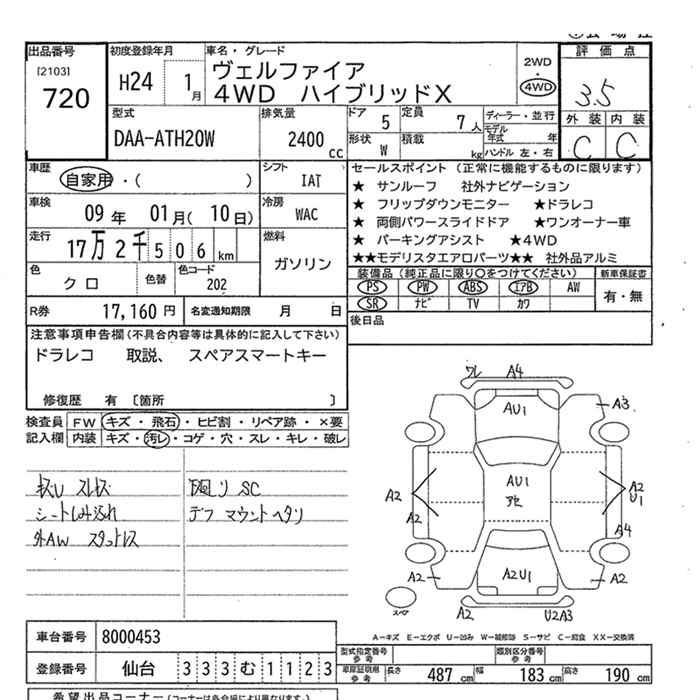 出品番号
[2103]
720
初度登録年月
H24 1月
車名・グレード
ヴェルファイア
4WD ハイブリッドX
2WD
・
4WD
評価点
3.5
外装 内装
C C
型式
DAA-ATH20W
排気量
2400cc
ドア 5
定員 7人
形状 W
積載 kg
ディーラー・並行
モデル年式 年
ハンドル 左・右
車歴
自家用・( )
シフト
IAT
車検
09年 01月(10日)
冷房
WAC
走行
17万2千506km
燃料
ガソリン
色
クロ
色替
色コード
202
セールスポイント (正常に機能するものに限ります)
★ サンルーフ 社外ナビゲーション
★ フリップダウンモニター ★ドラレコ
★ 両側パワースライドドア ★ワンオーナー車
★ パーキングアシスト ★4WD
★★モデリスタエアロパーツ★★ 社外品アルミ
装備品(純正品に限り○をつけてください)
新車保証書
PS PW ABS エアB AW
SR ナビ TV カワ
有・無
R券 17,160円
名変通知期限 月 日
後日品
注意事項申告欄(不具合内容等は具体的に記入して下さい)
ドラレコ 取説、 スペアスマートキー
修復歴 有 〔箇所 〕
検査員記入欄
FW キズ・飛石・ヒビ割・リペア跡・×要
内装 キズ・汚レ・コゲ・穴・スレ・キレ・破レ
キズU スレキズ
シートしみ汚れ
外AW スタットレス
下廻り SC
デフ マウントヘタリ
ワレ A4
AU1
A3
A2
A2
AU1
A2
U1
A4
A2
A2U1
A2
スペア
A2
U2A3
A-キズ E-エクボ U-凹み W-補修跡 S-サビ C-腐食 XX-交換済
車台番号 8000453
登録番号 仙台 333 む 1123
型式指定番号
参考
類別区分番号
参考
車庫証明用
参考
長さ 487cm 幅 183cm 高さ 190cm
希望出品コーナー